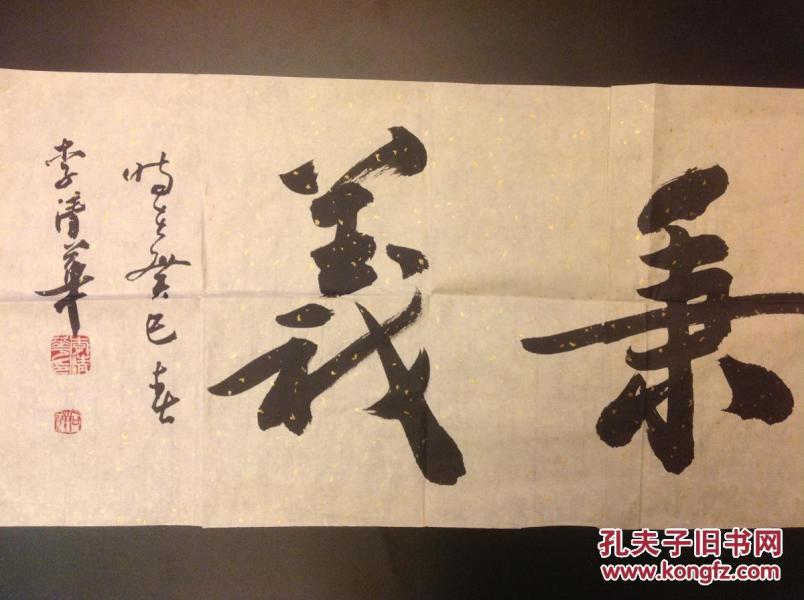 秉
義
時在癸巳春
李清華
孔夫子旧书网
www.kongfz.com